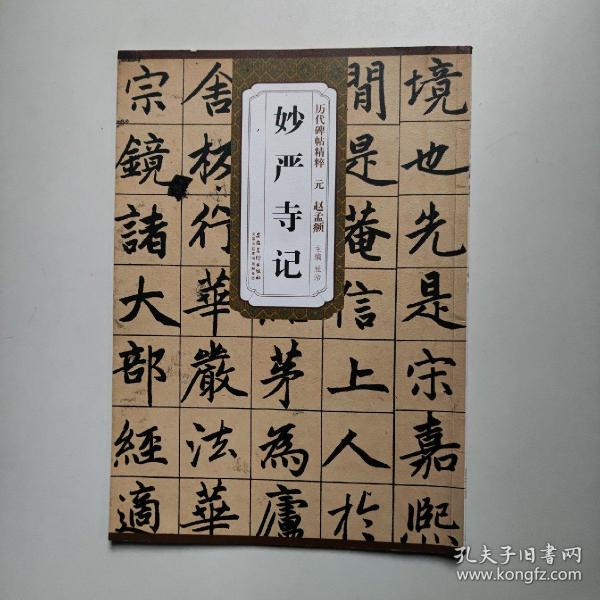 历代碑帖精粹 元 赵孟頫
主编 杜浩
妙严寺记
安徽美术出版社
境也先是宋嘉熙
間是菴信上人於
茅為廬
舍板行華嚴法華
宗鏡諸大部經適
孔夫子旧书网
www.kongfz.com